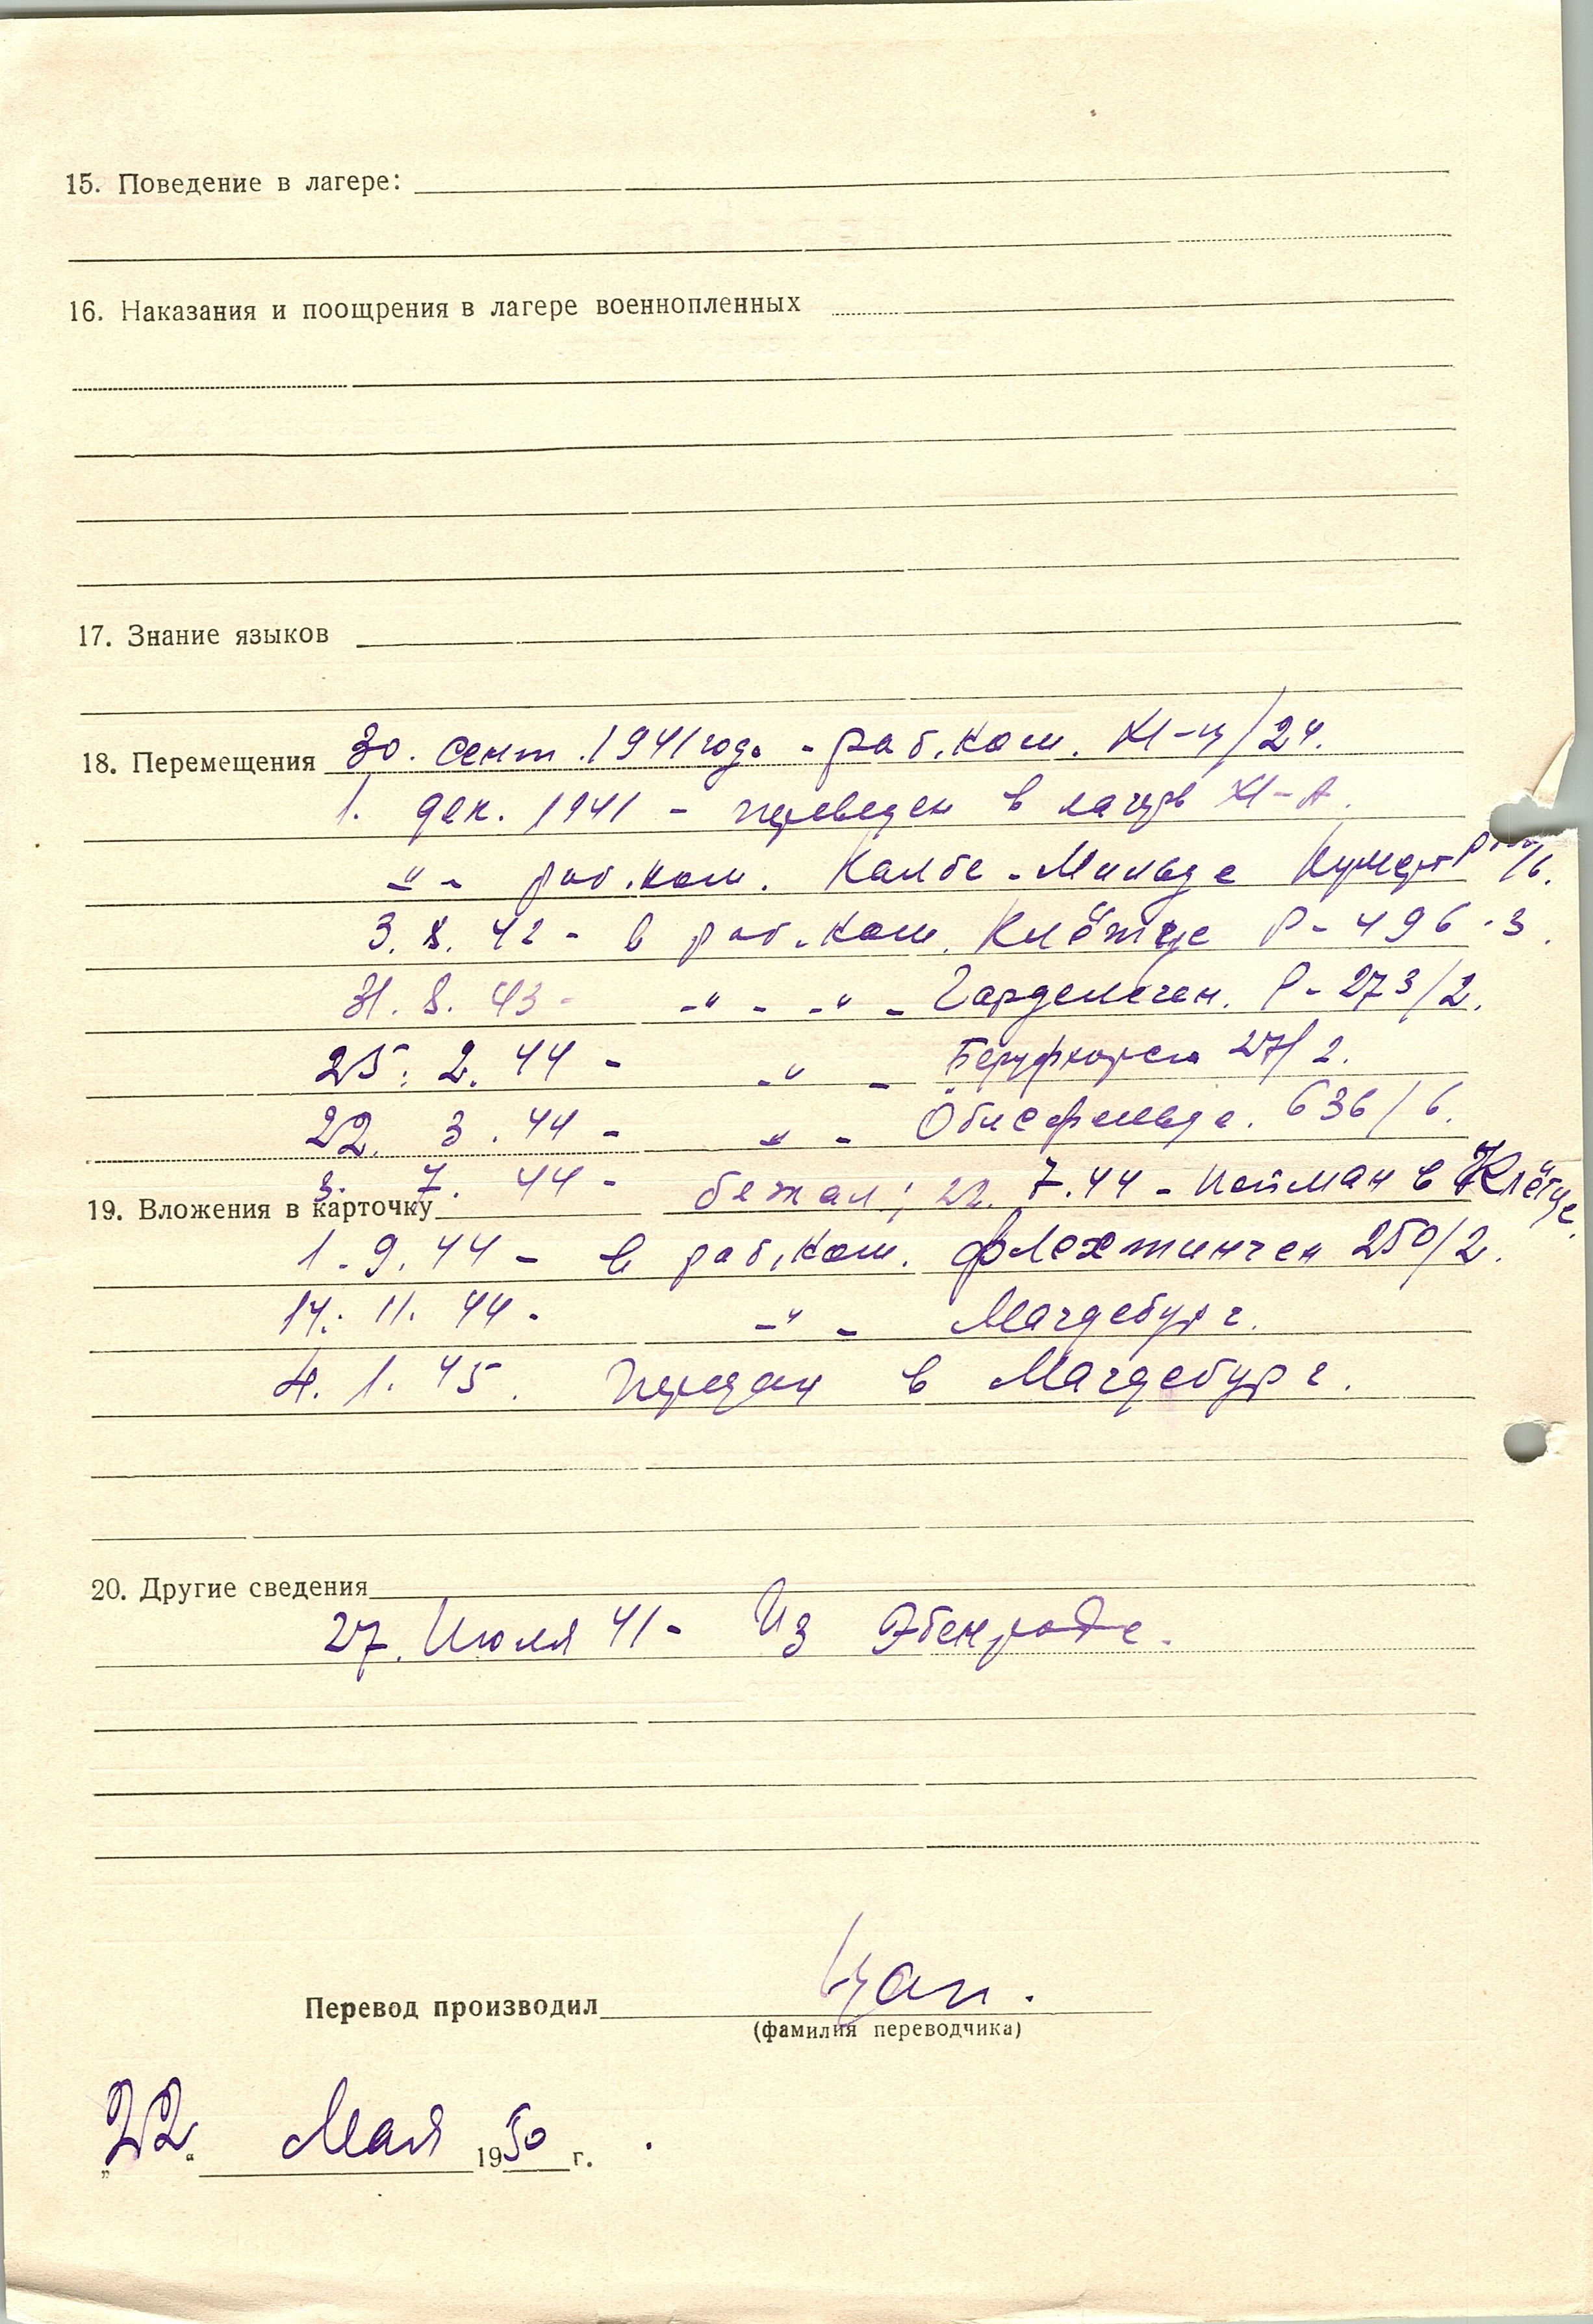 15. Поведение в лагере:
16. Наказания и поощрения в лагере военнопленных
17. Знание языков
18. Перемещения 30. сент. 1941 года - раб.ком. XI-ц/24.
1. дек. 1941 - переведен в лагерь XI-А.
-"- раб.ком. Калбе-Мильде
3. 8. 42 - в раб.ком. Клётце Р-496-3.
31. 8. 43 - -"- -"- Гарделеген. Р-273/2.
25. 2. 44 - -"- 27/2.
22. 3. 44 - -"- Обисфельде. 636/6.
3. 7. 44 - бежал; 22. 7.44 - пойман в Клётце.
19. Вложения в карточку
1. 9. 44 - в раб.ком. Флехтинген 250/2.
14. 11. 44 - -"- Магдебург.
4. 1. 45. Передан в Магдебург.
20. Другие сведения
27. Июля 41 - Из Эбенроде.
Перевод производил
(фамилия переводчика)
„22" Мая 1950 г.